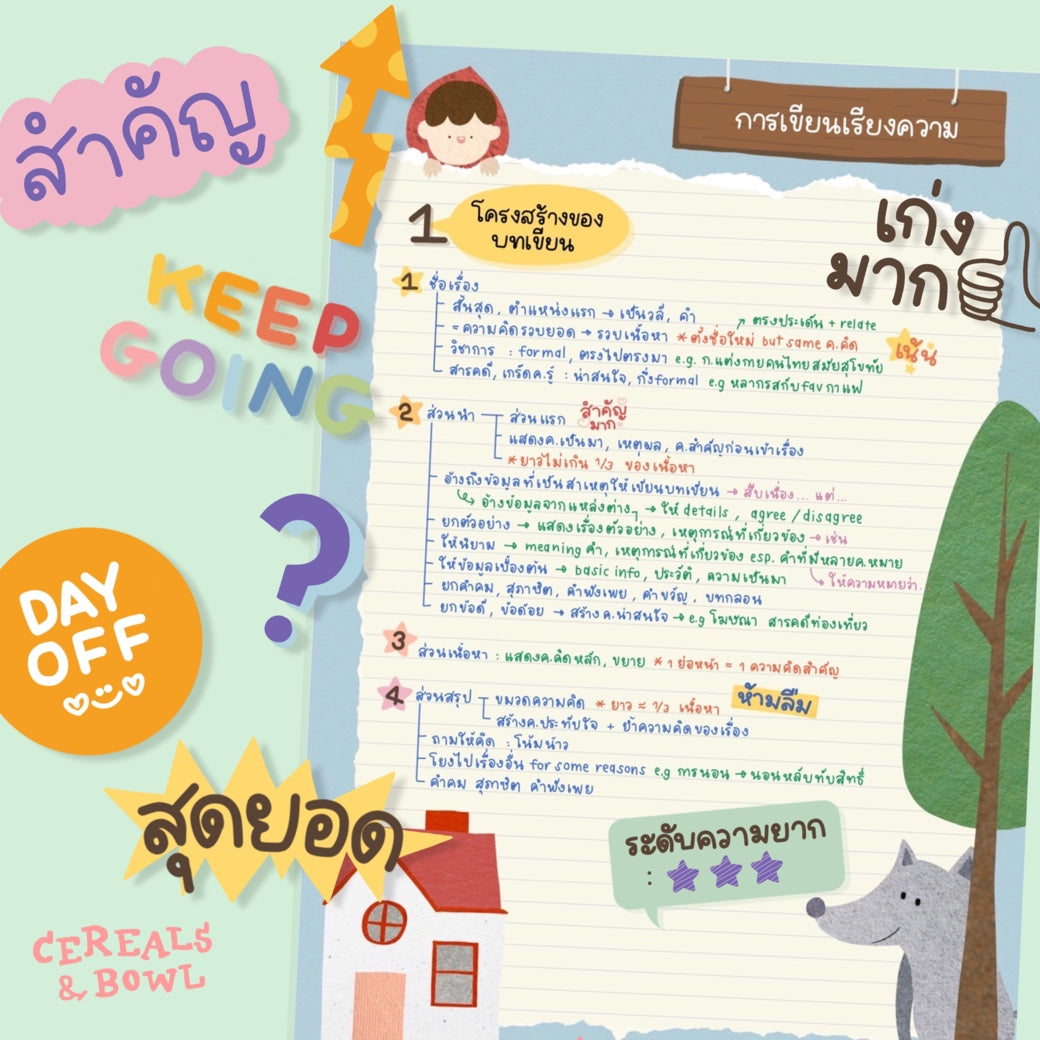 สำคัญ
KEEP
GOING
?
DAY
OFF
สุดยอด
CEREALS
& BOWL
การเขียนเรียงความ
เก่ง
มาก
1 โครงสร้างของ
บทเขียน
1 ชื่อเรื่อง
สั้นสุด, ตำแหน่งแรก → เป็นวลี, คำ
ตรงประเด็น + relate
= ความคิดรวบยอด → รวบเนื้อหา * ตั้งชื่อใหม่ but same ค.คิด
เน้น
วิชาการ : formal, ตรงไปตรงมา e.g. ก.แต่งกายคนไทยสมัยสุโขทัย
สารคดี, เกร็ดค.รู้ : น่าสนใจ, กึ่งformal e.g หลากรสกับfavกาแฟ
2 ส่วนนำ ส่วนแรก สำคัญ
มาก
แสดงค.เป็นมา, เหตุผล, ค.สำคัญก่อนเข้าเรื่อง
* ยาวไม่เกิน 1/3 ของเนื้อหา
อ้างถึงข้อมูลที่เป็นสาเหตุให้เขียนบทเขียน → สืบเนื่อง... แต่...
อ้างข้อมูลจากแหล่งต่างๆ → ให้ details, agree / disagree
ยกตัวอย่าง → แสดงเรื่องตัวอย่าง, เหตุการณ์ที่เกี่ยวข้อง → เช่น
ให้นิยาม → meaning คำ, เหตุการณ์ที่เกี่ยวข้อง esp. คำที่มีหลายค.หมาย
ให้ข้อมูลเบื้องต้น → basic info, ประวัติ, ความเป็นมา ให้ความหมายว่า..
ยกคำคม, สุภาษิต, คำพังเพย, คำขวัญ, บทกลอน
ยกข้อดี, ข้อด้อย → สร้างค.น่าสนใจ → e.g โฆษณา สารคดีท่องเที่ยว
3 ส่วนเนื้อหา : แสดงค.คิดหลัก, ขยาย * 1 ย่อหน้า = 1 ความคิดสำคัญ
4 ส่วนสรุป ขมวดความคิด * ยาว ≈ 1/3 เนื้อหา ห้ามลืม
สร้างค.ประทับใจ + ย้ำความคิดของเรื่อง
ถามให้คิด : โน้มน้าว
โยงไปเรื่องอื่น for some reasons e.g การนอน → นอนหลับทับสิทธิ์
คำคม สุภาษิต คำพังเพย
ระดับความยาก
: